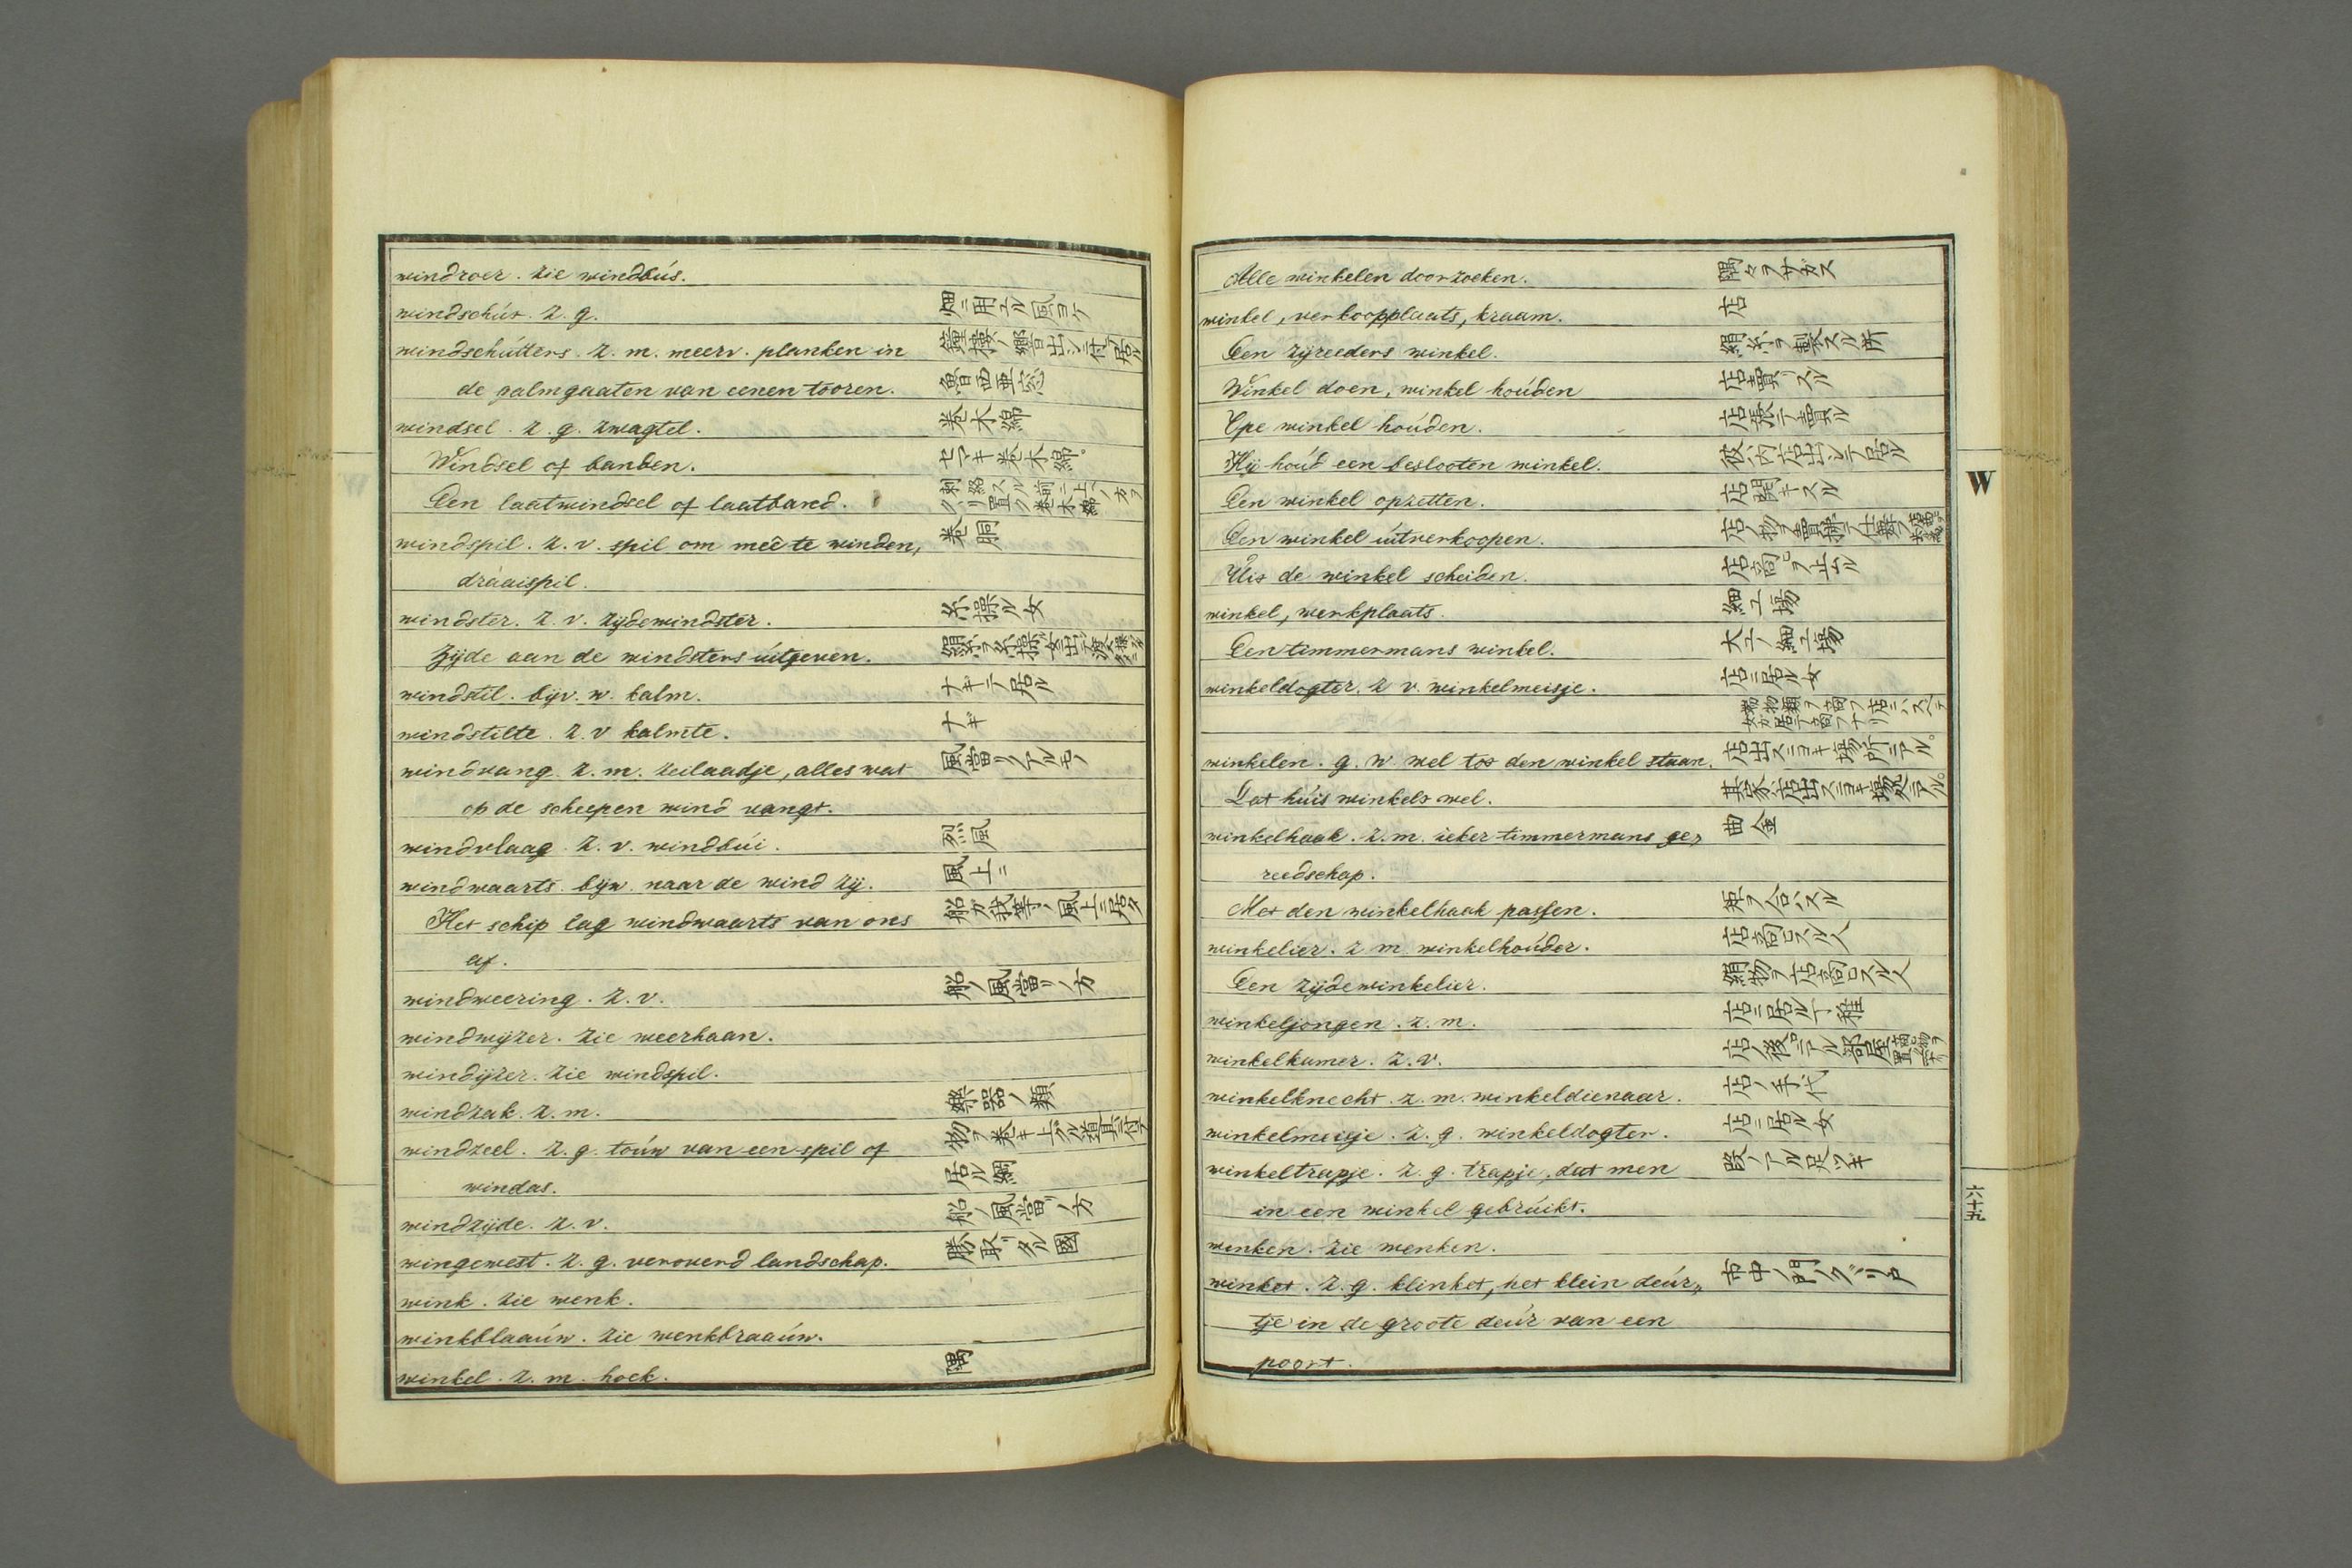 windroer. zie windbús.
windschút. z. g. 畑ニ用ユル風ヨケ
windschútters. z. m. meerv. planken in 鐘樓ノ響出シニ付テ居ル
de galmgaaten van eenen tooren.
windsel. z. g. zwagtel. 巻木綿
Windsel of banden. セマキ巻木綿。
Een laatwindsel of laatband.
windspil. z. v. spil om meê te winden, 巻胴
draaispil.
windster. z. v. zijdewindster. 糸操ル女
Zijde aan de windsters uítgeven.
windstil. bijv. w. kalm. ナギテ居ル
windstilte. z. v kalmte. ナギ
windvang. z. m. zeilaadje, alles wat 風當リノアルモノ
op de scheepen wind vangt.
windvlaag. z. v. windbúi. 烈風
windwaarts. bijw. naar de wind zij. 風上ニ
Het schip lag windwaarts van ons 船ガ我等ノ風上ニ居タ
af.
windweering. z. v. 船ノ風當リノ方
windwijzer. zie weerhaan.
windijzer. zie windspil.
windzak. z. m. 樂器ノ類
windzeel. z. g. toúw van een spil of 物ヲ巻キ上ゲル道具ニ付テ
windas. 居ル綱
windzijde. z. v. 船ノ風當リノ方
wingewest. z. g. veroverd landschap. 勝取リタル國
wink. zie wenk.
winkblaaúw. zie wenkbraaúw.
winkel. z. m. hoek. 隅
Alle winkelen doorzoeken. 隅々ヲサガス
winkel, verkoopplaats, kraam. 店
Een zijreeders winkel. 絹糸ヲ製スル所
Winkel doen, winkel hoúden 店賣リスル
Ope winkel hoúden. 店張テ賣ル
Hij hoúd een beslooten winkel. 彼ハ内店出シテ居ル
Een winkel opzetten. 店開キスル
Een winkel uítverkoopen.
Uit de winkel scheiden. 店商ヒヲ止ル
winkel, werkplaats. 細工場
Een timmermans winkel. 大工ノ細工場
winkeldogter. z v. winkelmeisje. 店ニ居ル女
winkelen. g. w. wel tot den winkel staan. 店出スニヨキ場所ニアル。
Dat húis winkelt wel. 其家ハ店出スニヨキ場処ニアル。
winkelhaak. z. m. zeker timmermans ge„ 曲金
reedschap.
Met den winkelhaak passen.
winkelier. z m. winkelhoúder. 店商ヒスル人
Een zijdewinkelier. 絹物ヲ店商ヒスル人
winkeljongen. z. m. 店ニ居ル丁稚
winkelkamer. z. v. 店ノ後ロニアル部屋
winkelknecht. z. m. winkeldienaar. 店ノ手代
winkelmeisje. z. g. winkeldogter. 店ニ居ル女
winkeltrapje. z. g. trapje, dat men 段ノアル足ツギ
in een winkel gebrúikt.
winken. zie wenken.
winket. z. g. klinket, het klein deúr„ 市中ノ門ノグヾリ戸
tje in de groote deúr van een
poort.
W
六十五